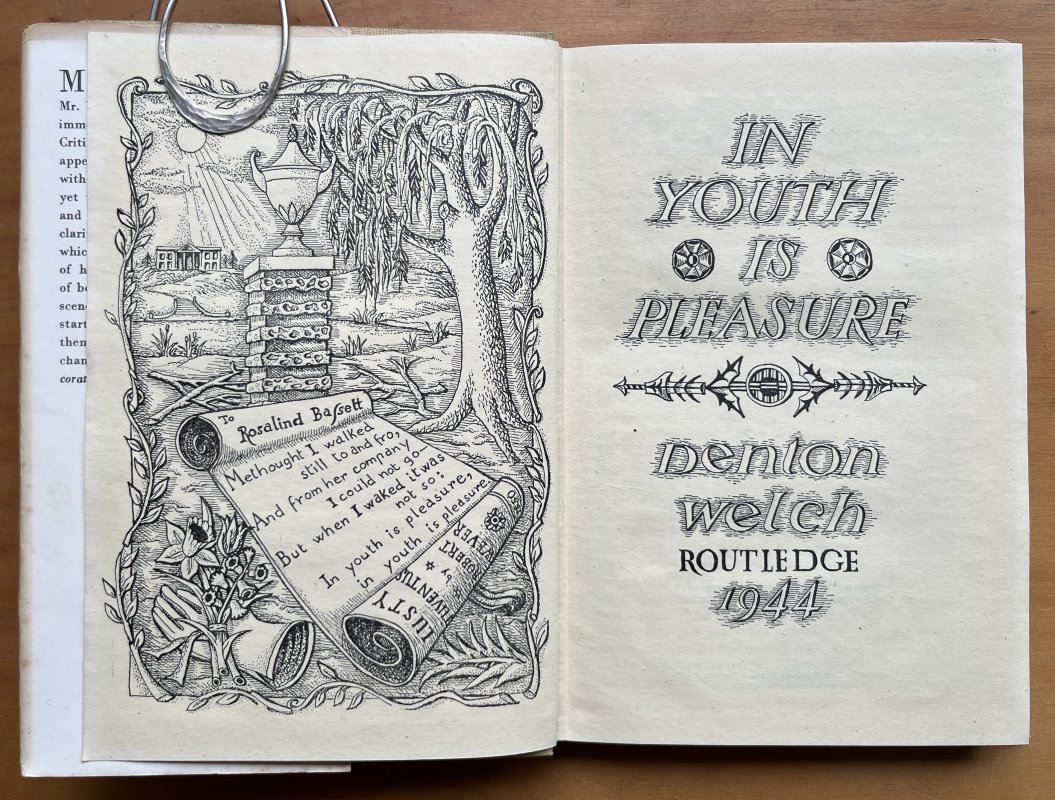 M
Mr.
imm
Criti
appe
with
yet
and
clari
whic
of h
of be
scen
start
them
chan
corat
To
Rosalind Baſsett
Methought I walked
still to and fro,
And from her company
I could not go—
But when I waked it was
not so:
In youth is pleasure,
in youth is pleasure.
LUSTY
by
ROBERT
IN
YOUTH
IS
PLEASURE
Denton
welch
ROUTLEDGE
1944